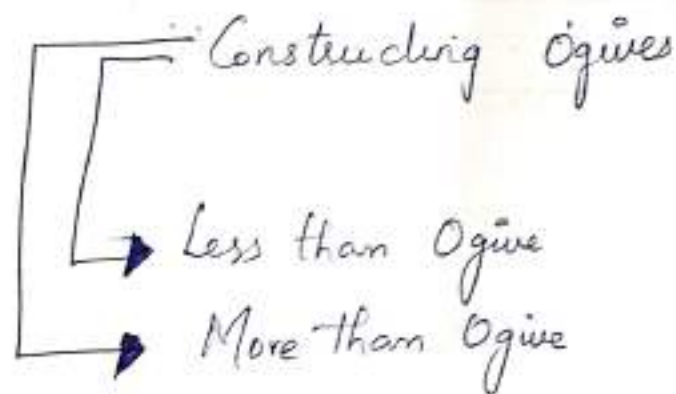 Constructing Ogives
Less than Ogive
More than Ogive